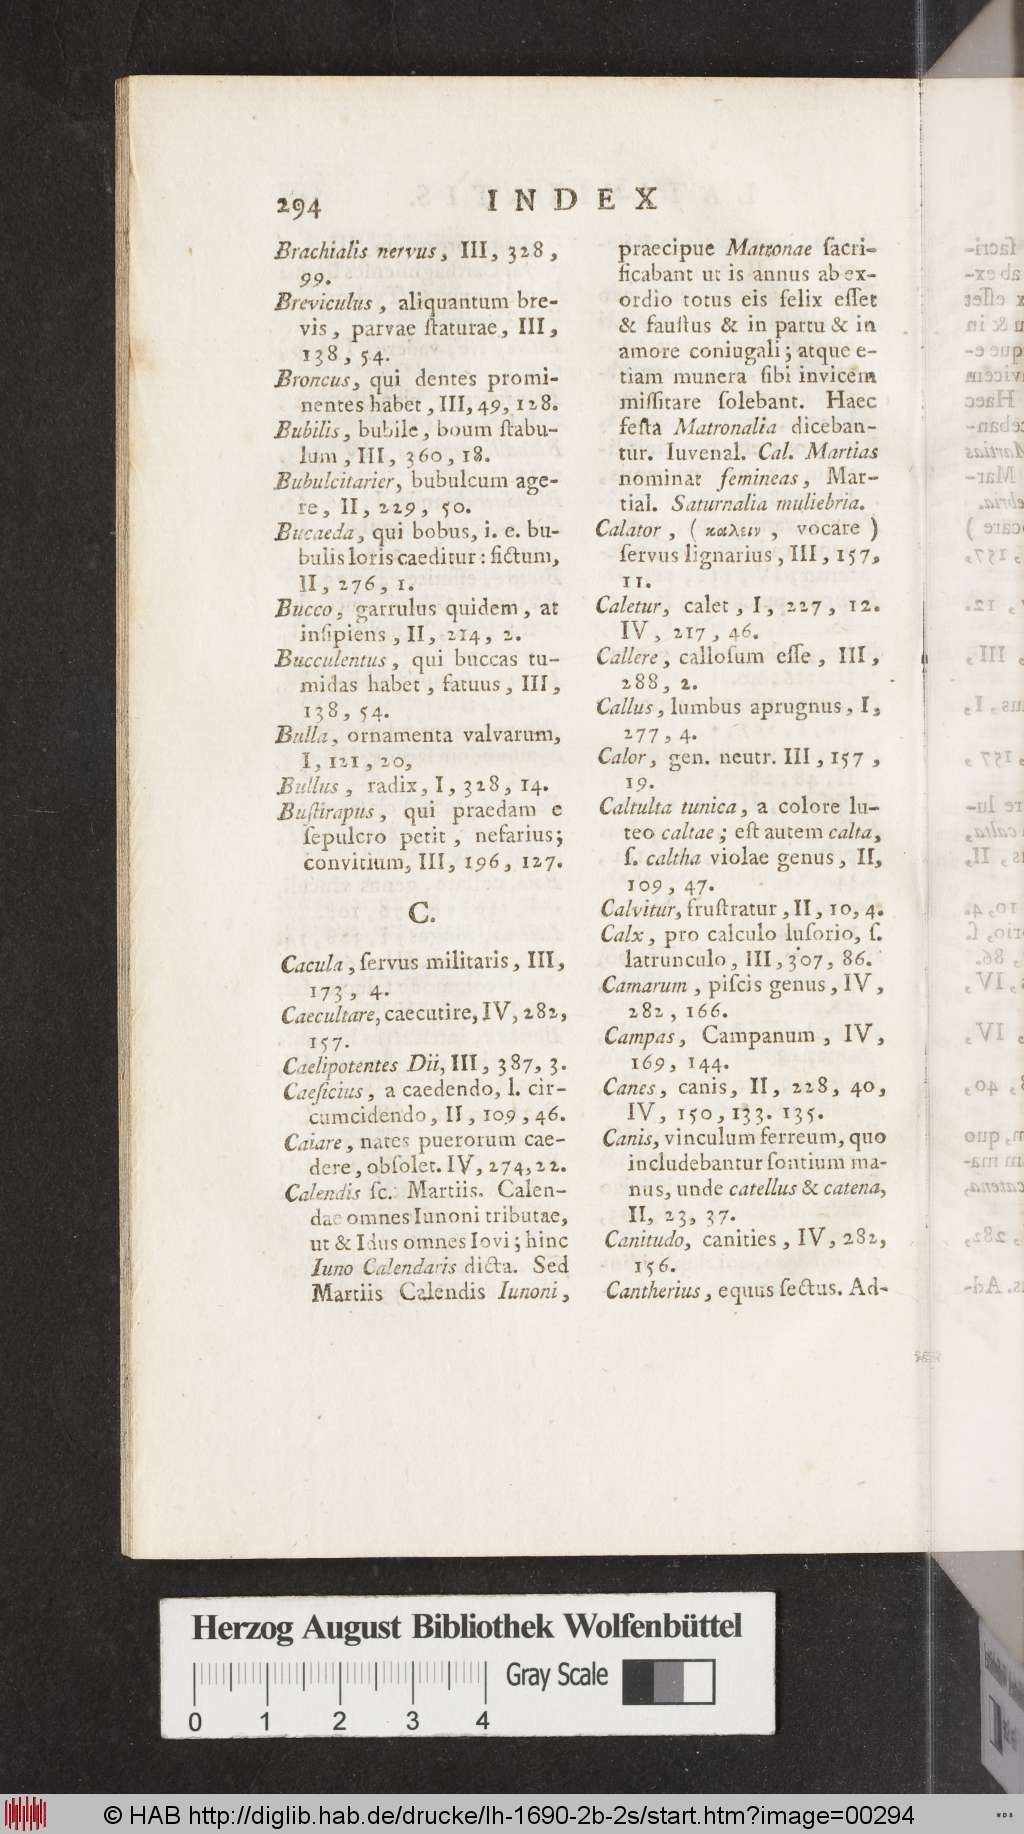 294 INDEX
Brachialis nervus, III, 328,
99.
Breviculus, aliquantum bre-
vis, parvae ſtaturae, III,
138, 54.
Broncus, qui dentes promi-
nentes habet, III, 49, 128.
Bubilis, bubile, boum ſtabu-
lum, III, 360, 18.
Bubulcitarier, bubulcum age-
re, II, 229, 50.
Bucaeda, qui bobus, i. e. bu-
bulis loris caeditur: fictum,
II, 276, 1.
Bucco, garrulus quidem, at
inſipiens, II, 214, 2.
Bucculentus, qui buccas tu-
midas habet, fatuus, III,
138, 54.
Bulla, ornamenta valvarum,
I, 121, 20,
Bullus, radix, I, 328, 14.
Buſtirapus, qui praedam e
ſepulcro petit, nefarius;
convitium, III, 196, 127.
C.
Cacula, ſervus militaris, III,
173, 4.
Caecultare, caecutire, IV, 282,
157.
Caelipotentes Dii, III, 387, 3.
Caeſicius, a caedendo, l. cir-
cumcidendo, II, 109, 46.
Caiare, nates puerorum cae-
dere, obſolet. IV, 274, 22.
Calendis ſc. Martiis. Calen-
dae omnes Iunoni tributae,
ut & Idus omnes Iovi; hinc
Iuno Calendaris dicta. Sed
Martiis Calendis Iunoni,
praecipue Matronae ſacri-
ficabant ut is annus ab ex-
ordio totus eis felix eſſet
& fauſtus & in partu & in
amore coniugali; atque e-
tiam munera ſibi invicem
miſſitare ſolebant. Haec
feſta Matronalia diceban-
tur. Iuvenal. Cal. Martias
nominat femineas, Mar-
tial. Saturnalia muliebria.
Calator, (καλειν, vocare)
ſervus lignarius, III, 157,
11.
Caletur, calet, I, 227, 12.
IV, 217, 46.
Callere, calloſum eſſe, III,
288, 2.
Callus, lumbus aprugnus, I,
277, 4.
Calor, gen. neutr. III, 157,
19.
Caltulta tunica, a colore lu-
teo caltae; eſt autem calta,
ſ. caltha violae genus, II,
109, 47.
Calvitur, fruſtratur, II, 10, 4.
Calx, pro calculo luſorio, ſ.
latrunculo, III, 307, 86.
Camarum, piſcis genus, IV,
282, 166.
Campas, Campanum, IV,
169, 144.
Canes, canis, II, 228, 40,
IV, 150, 133. 135.
Canis, vinculum ferreum, quo
includebantur ſontium ma-
nus, unde catellus & catena,
II, 23, 37.
Canitudo, canities, IV, 282,
156.
Cantherius, equus ſectus. Ad-
Herzog August Bibliothek Wolfenbüttel
Gray Scale
0 1 2 3 4
© HAB http://diglib.hab.de/drucke/lh-1690-2b-2s/start.htm?image=00294